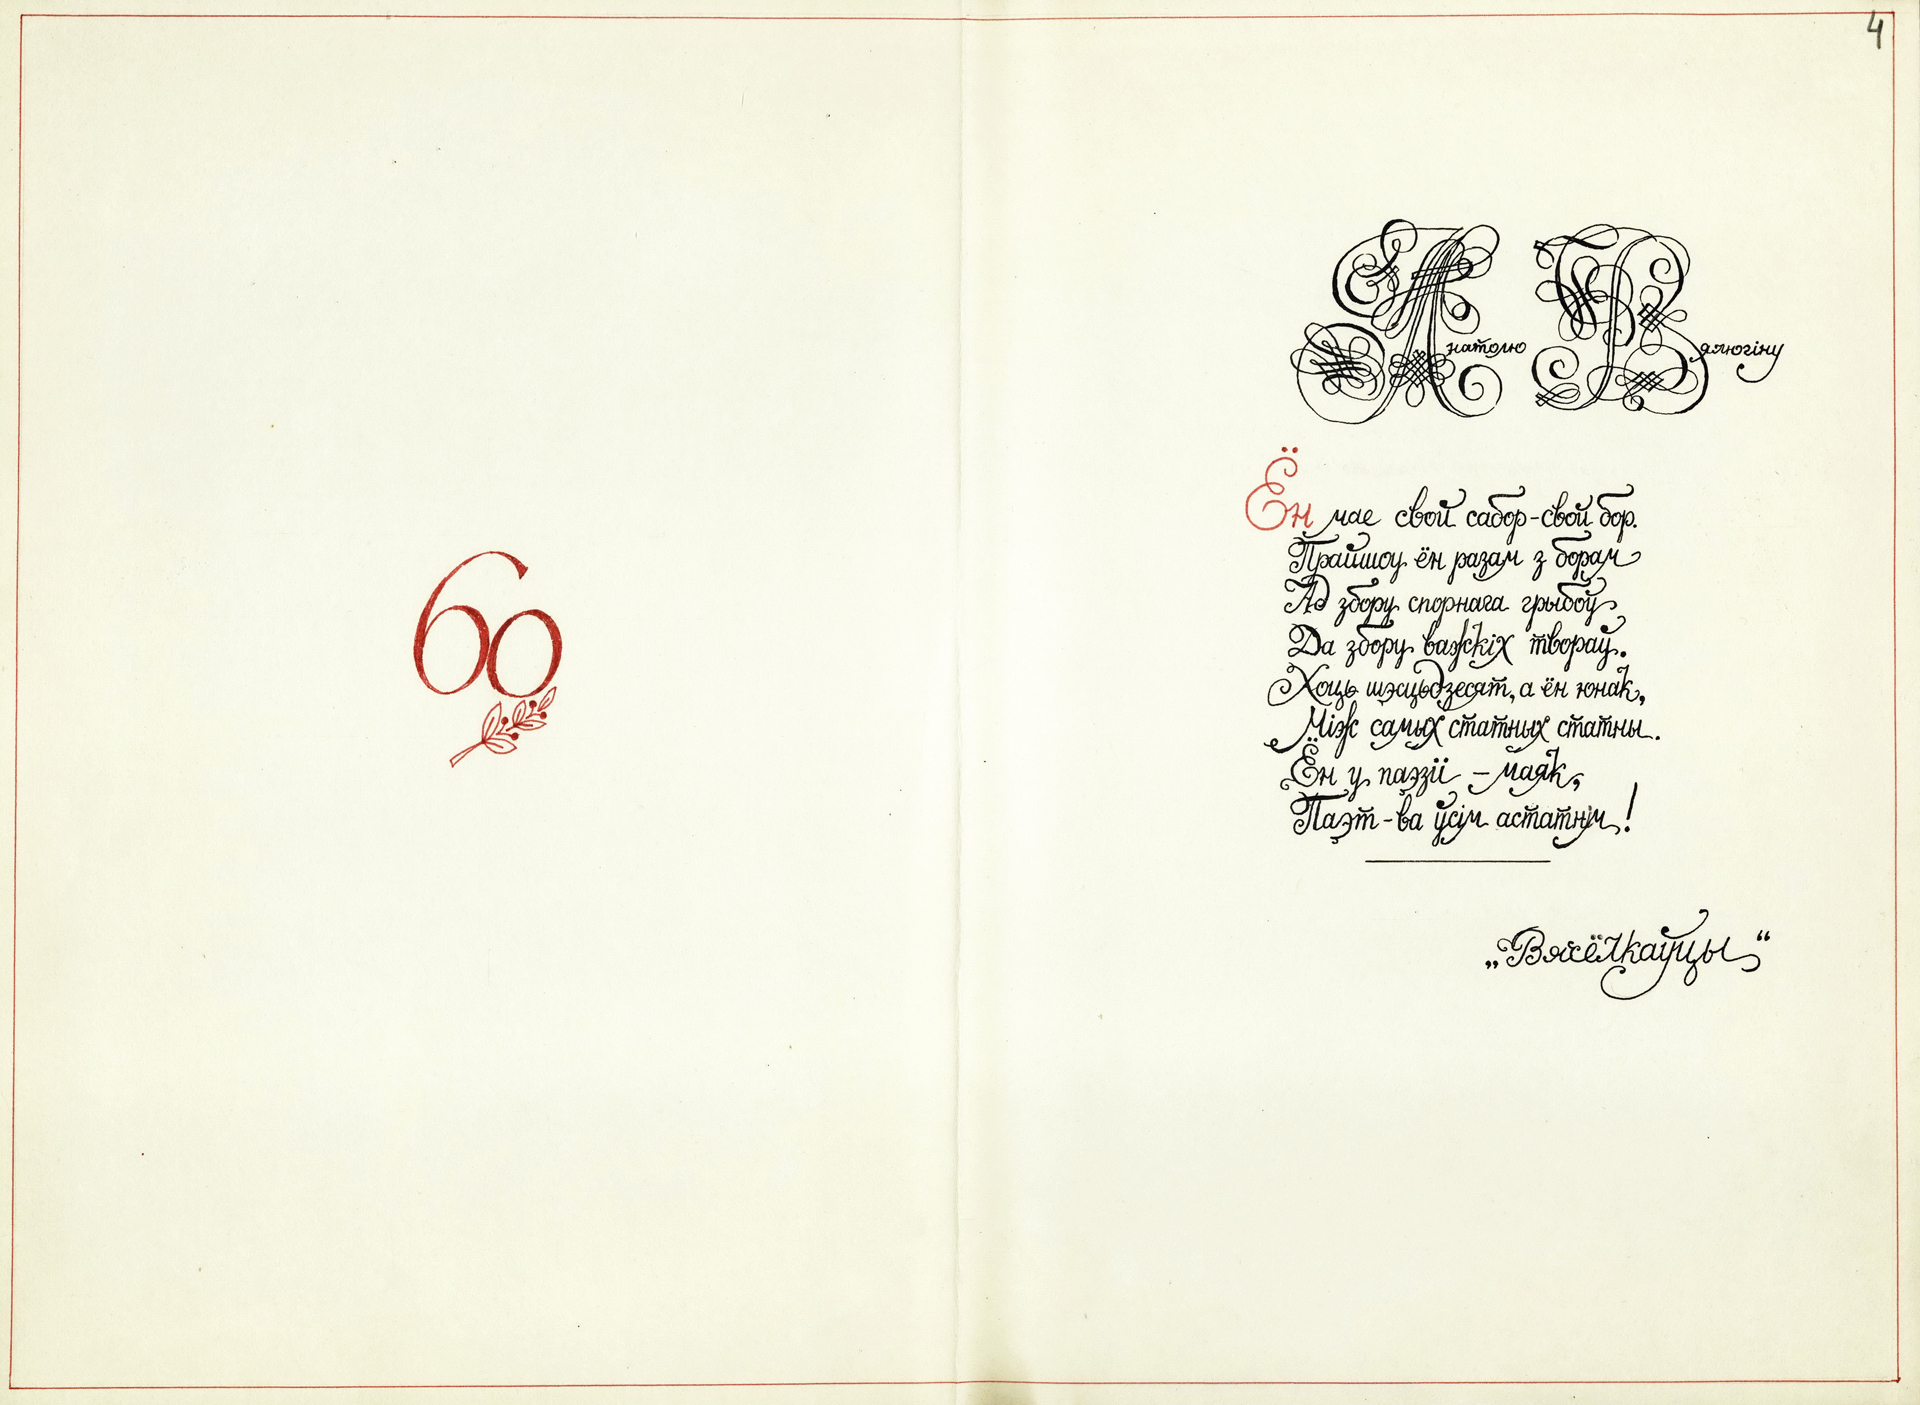 4
60
Анатолю Вялюгіну
Ён мае свой сабор-свой бор.
Прайшоў ён разам з борам
Ад збору спорнага грыбоў
Да збору важкіх твораў.
Хоць шэсцьдзесят, а ён юнак,
Між самых статных статны.
Ён у паэзіі – маяк,
Паэт-ва ўсім астатнім!
„Вясёлкаўцы“